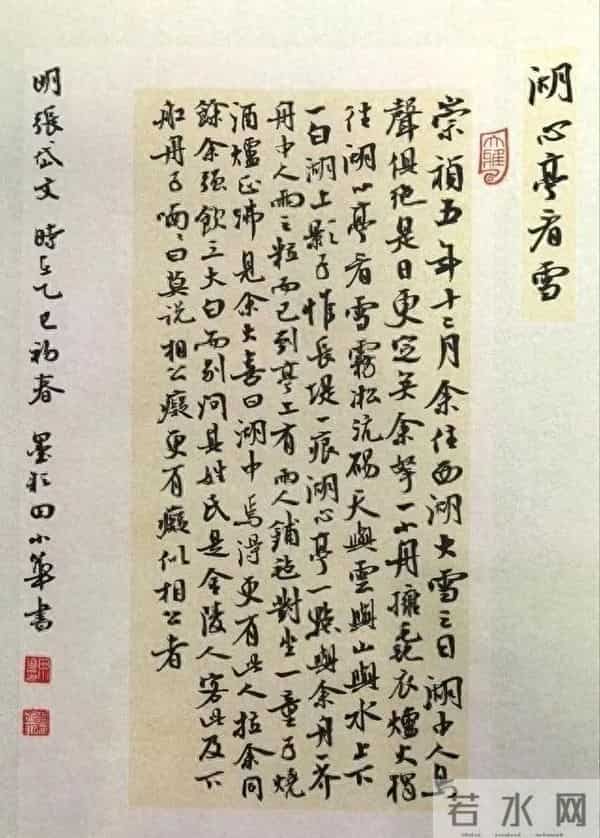 湖心亭看雪
大雅
崇禎五年十二月余住西湖大雪三日湖中人鳥
聲俱絕是日更定矣余拏一小舟擁毳衣爐火獨
往湖心亭看雪霧凇沆碭天與雲與山與水上下
一白湖上影子惟長堤一痕湖心亭一點與余舟一芥
舟中人兩三粒而已到亭上有兩人鋪氈對坐一童子燒
酒爐正沸見余大喜曰湖中焉得更有此人拉余同
飲余强飲三大白而别问其姓氏是金陵人客此及下
船舟子喃〻曰莫说相公癡更有癡似相公者
明張岱文 時在乙巳初春 墨於 田小華書
若水网